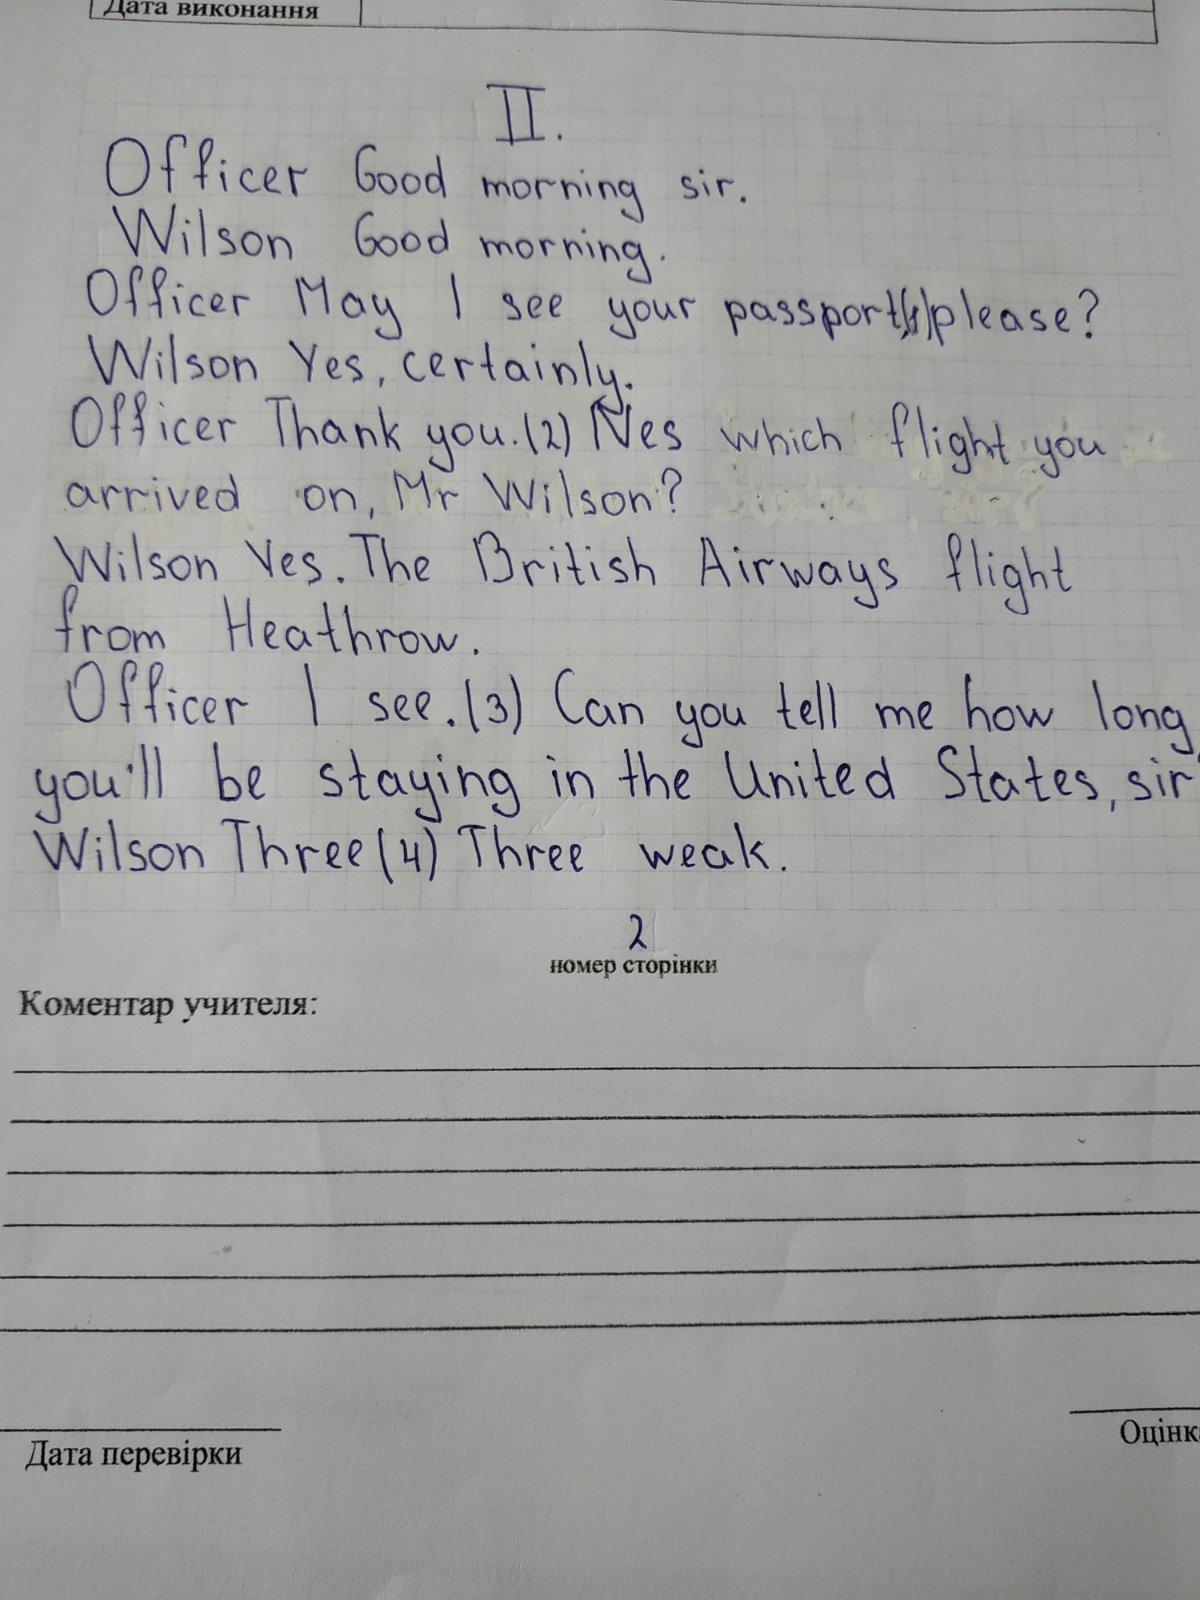 Дата виконання
II.
Officer Good morning sir.
Wilson Good morning.
Officer May I see your passport(1)please?
Wilson Yes, certainly.
Officer Thank you.(2) Nes which flight you
arrived on, Mr Wilson?
Wilson Yes. The British Airways flight
from Heathrow.
Officer I see.(3) Can you tell me how long
you'll be staying in the United States, sir
Wilson Three(4) Three weak.
2
номер сторінки
Коментар учителя:
Дата перевірки
Оцінк